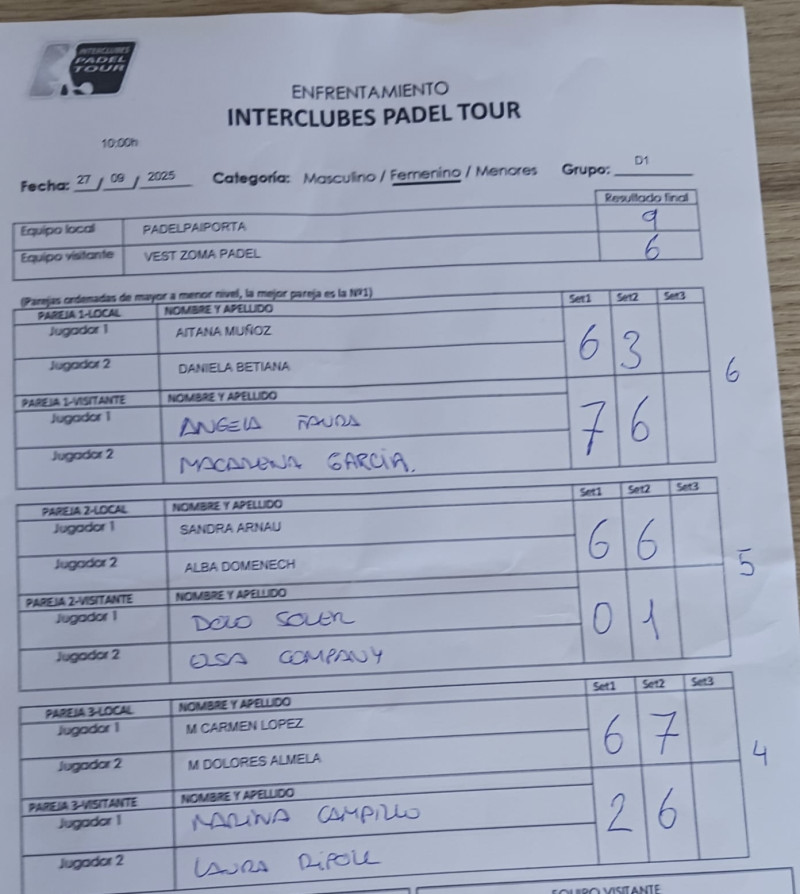 INTERCLUBES
PADEL
TOUR
ENFRENTAMIENTO
INTERCLUBES PADEL TOUR
10:00h
Fecha: 27 / 09 / 2025 Categoría: Masculino / Femenino / Menores Grupo: D1
Resultado final
Equipo local PADELPAIPORTA 9
Equipo visitante VEST ZOMA PADEL 6
(Parejas ordenadas de mayor a menor nivel, la mejor pareja es la Nº1)
PAREJA 1-LOCAL NOMBRE Y APELLIDO Set1 Set2 Set3
Jugador 1 AITANA MUÑOZ
6 3
Jugador 2 DANIELA BETIANA
6
PAREJA 1-VISITANTE NOMBRE Y APELLIDO
Jugador 1 ANGELA FAURA
7 6
Jugador 2 MACARENA GARCÍA.
PAREJA 2-LOCAL NOMBRE Y APELLIDO Set1 Set2 Set3
Jugador 1 SANDRA ARNAU
6 6
Jugador 2 ALBA DOMENECH
5
PAREJA 2-VISITANTE NOMBRE Y APELLIDO
Jugador 1 DOLO SOLER
0 1
Jugador 2 ELSA COMPANY
PAREJA 3-LOCAL NOMBRE Y APELLIDO Set1 Set2 Set3
Jugador 1 M CARMEN LOPEZ
6 7
Jugador 2 M DOLORES ALMELA
4
PAREJA 3-VISITANTE NOMBRE Y APELLIDO
Jugador 1 MARINA CAMPILLO
2 6
Jugador 2 LAURA RIPOLL
EQUIPO VISITANTE